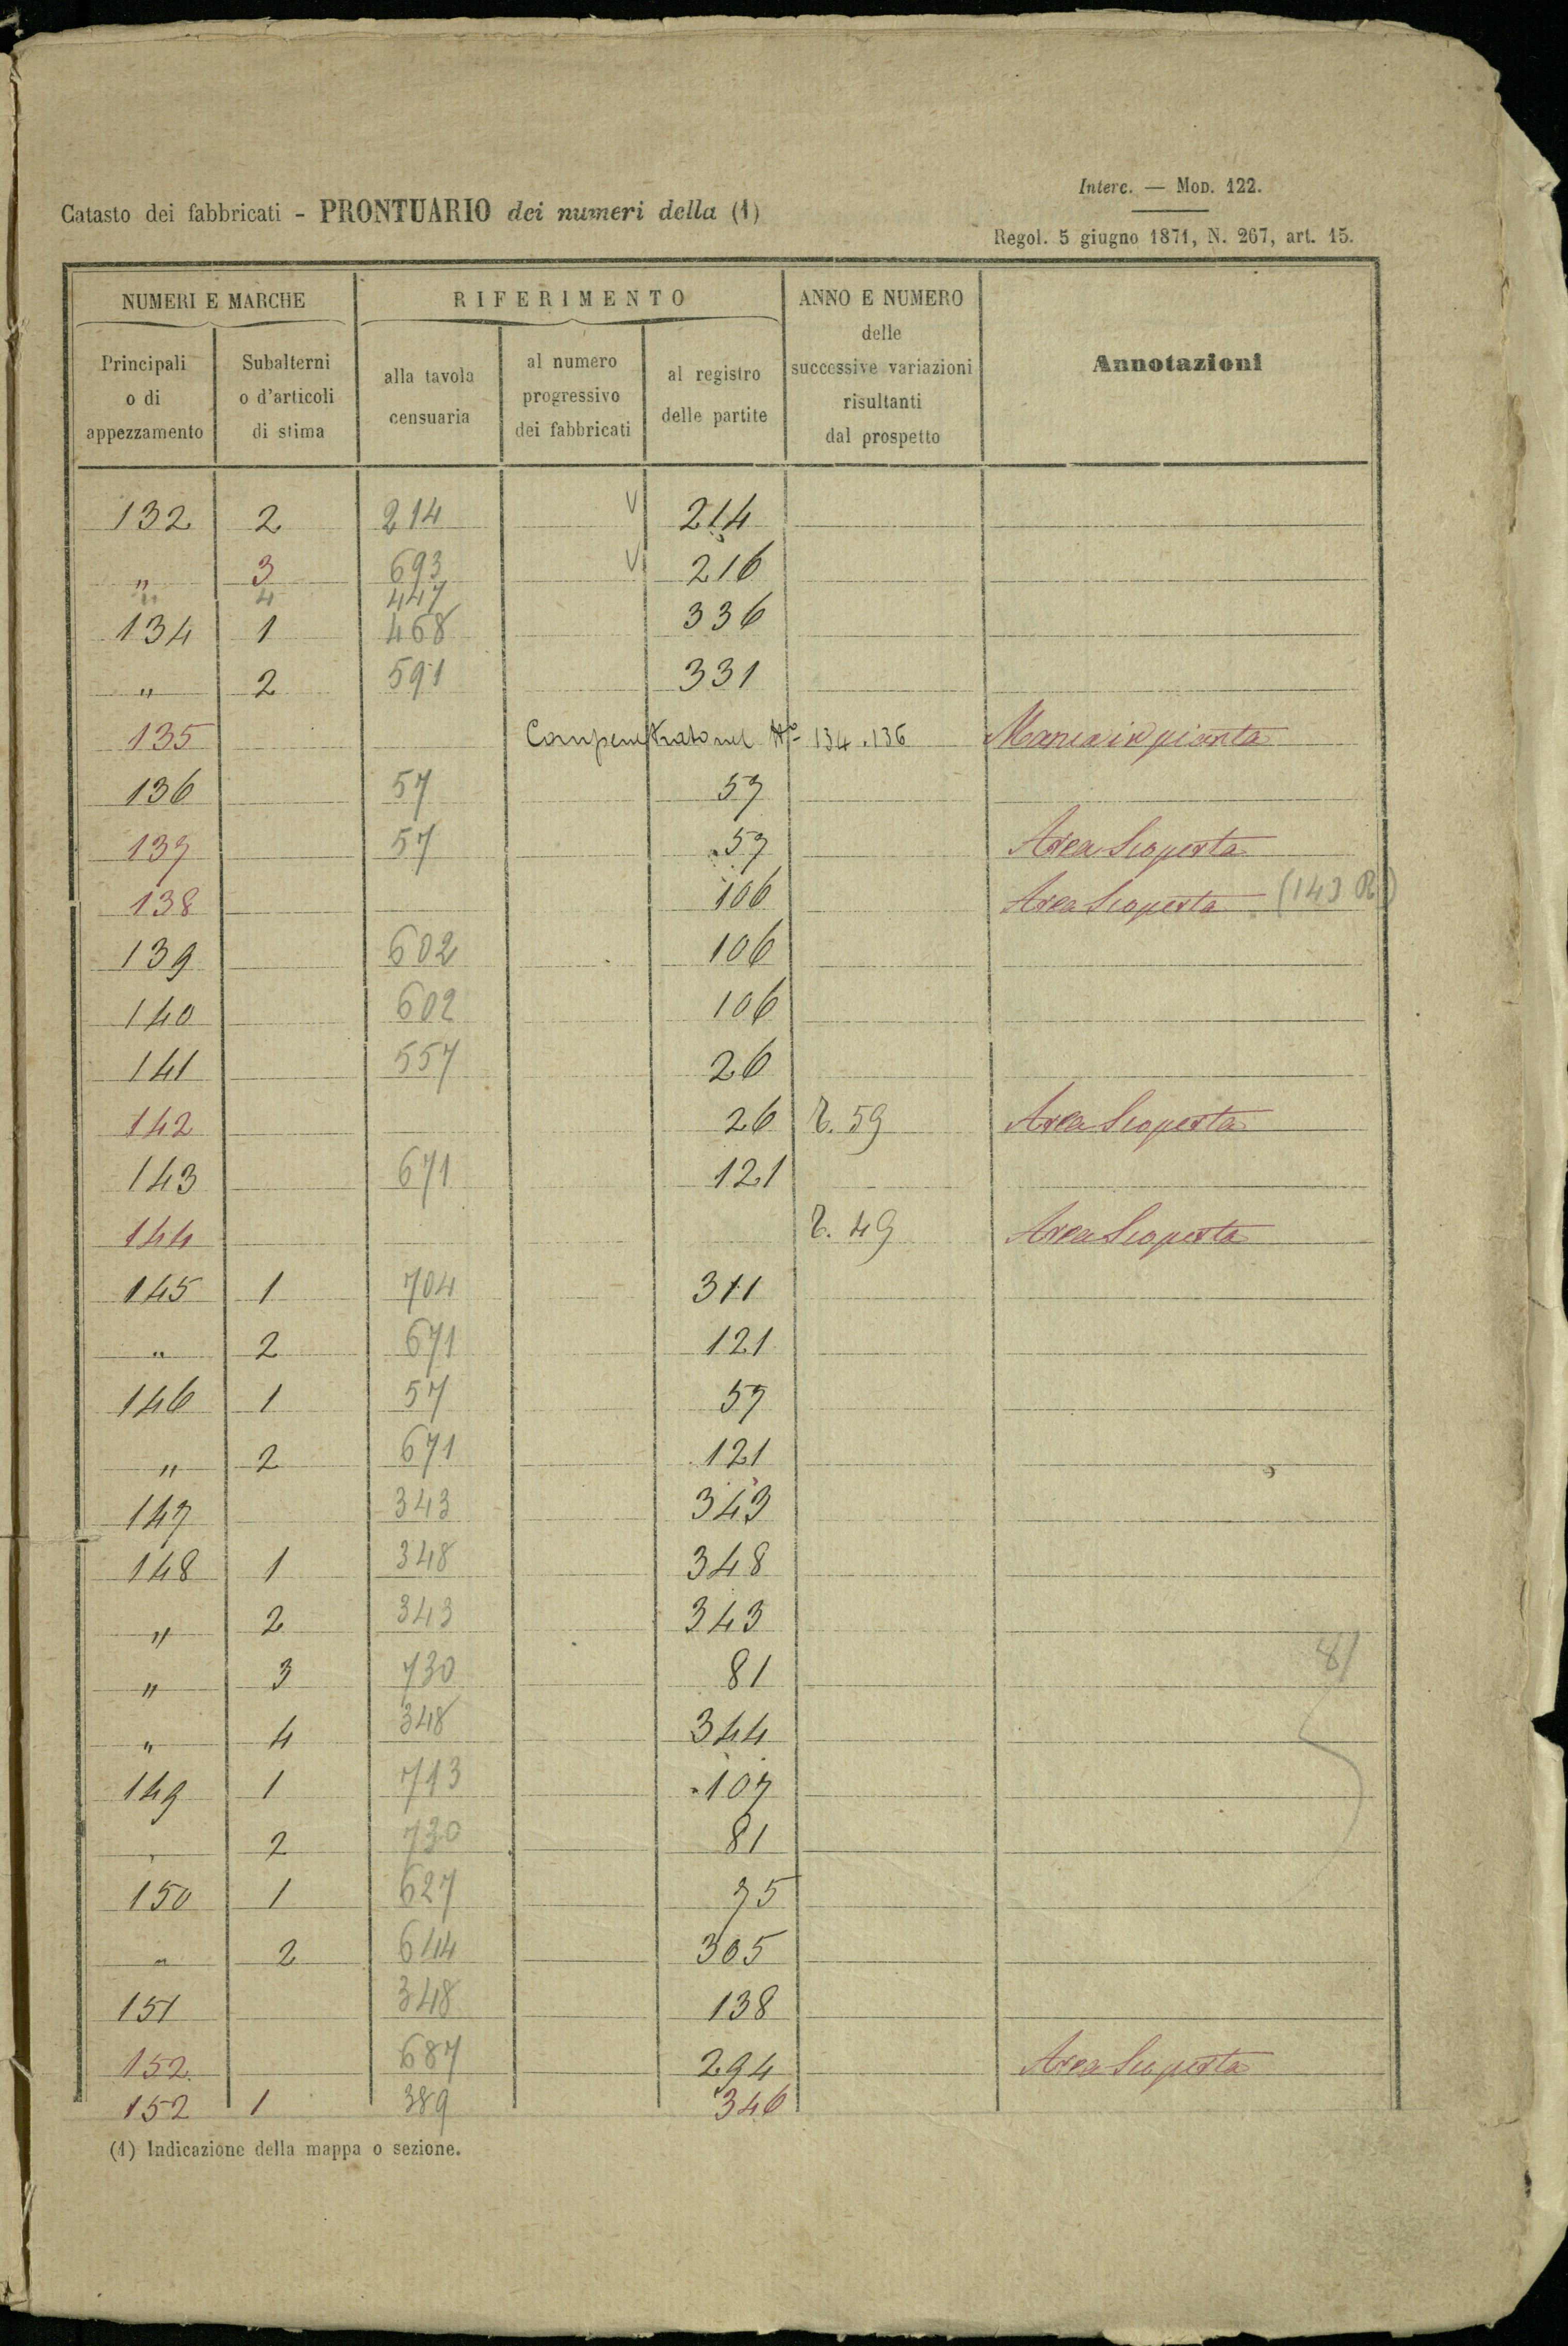 Interc. — Mod. 122.
Catasto dei fabbricati - PRONTUARIO dei numeri della (1)
Regol. 5 giugno 1871, N. 267, art. 15.
NUMERI E MARCHE
Principali o di appezzamento
Subalterni o d'articoli di stima
RIFERIMENTO
alla tavola censuaria
al numero progressivo dei fabbricati
al registro delle partite
ANNO E NUMERO delle successive variazioni risultanti dal prospetto
Annotazioni
132 2 214 V 214
" 3 693 V 216
" 4 447
134 1 468 336
" 2 591 331
135 Compenetrato nel N° 134.136 Manca in pianta
136 57 57
137 57 57 Area Scoperta
138 106 Area Scoperta (143 R)
139 602 106
140 602 106
141 557 26
142 26 59 Area Scoperta
143 671 121
144 49 Area Scoperta
145 1 704 311
" 2 671 121
146 1 57 57
" 2 671 121
147 343 343
148 1 348 348
" 2 343 343
" 3 730 81
" 4 348 344
149 1 713 107
" 2 730 81
150 1 627 75
" 2 644 305
151 348 138
152 687 294 Area Scoperta
152 1 389 346
(1) Indicazione della mappa o sezione.